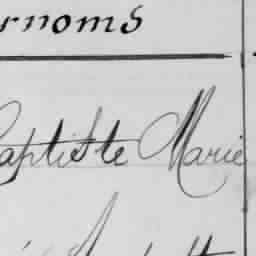 rnoms
Baptiste Marie